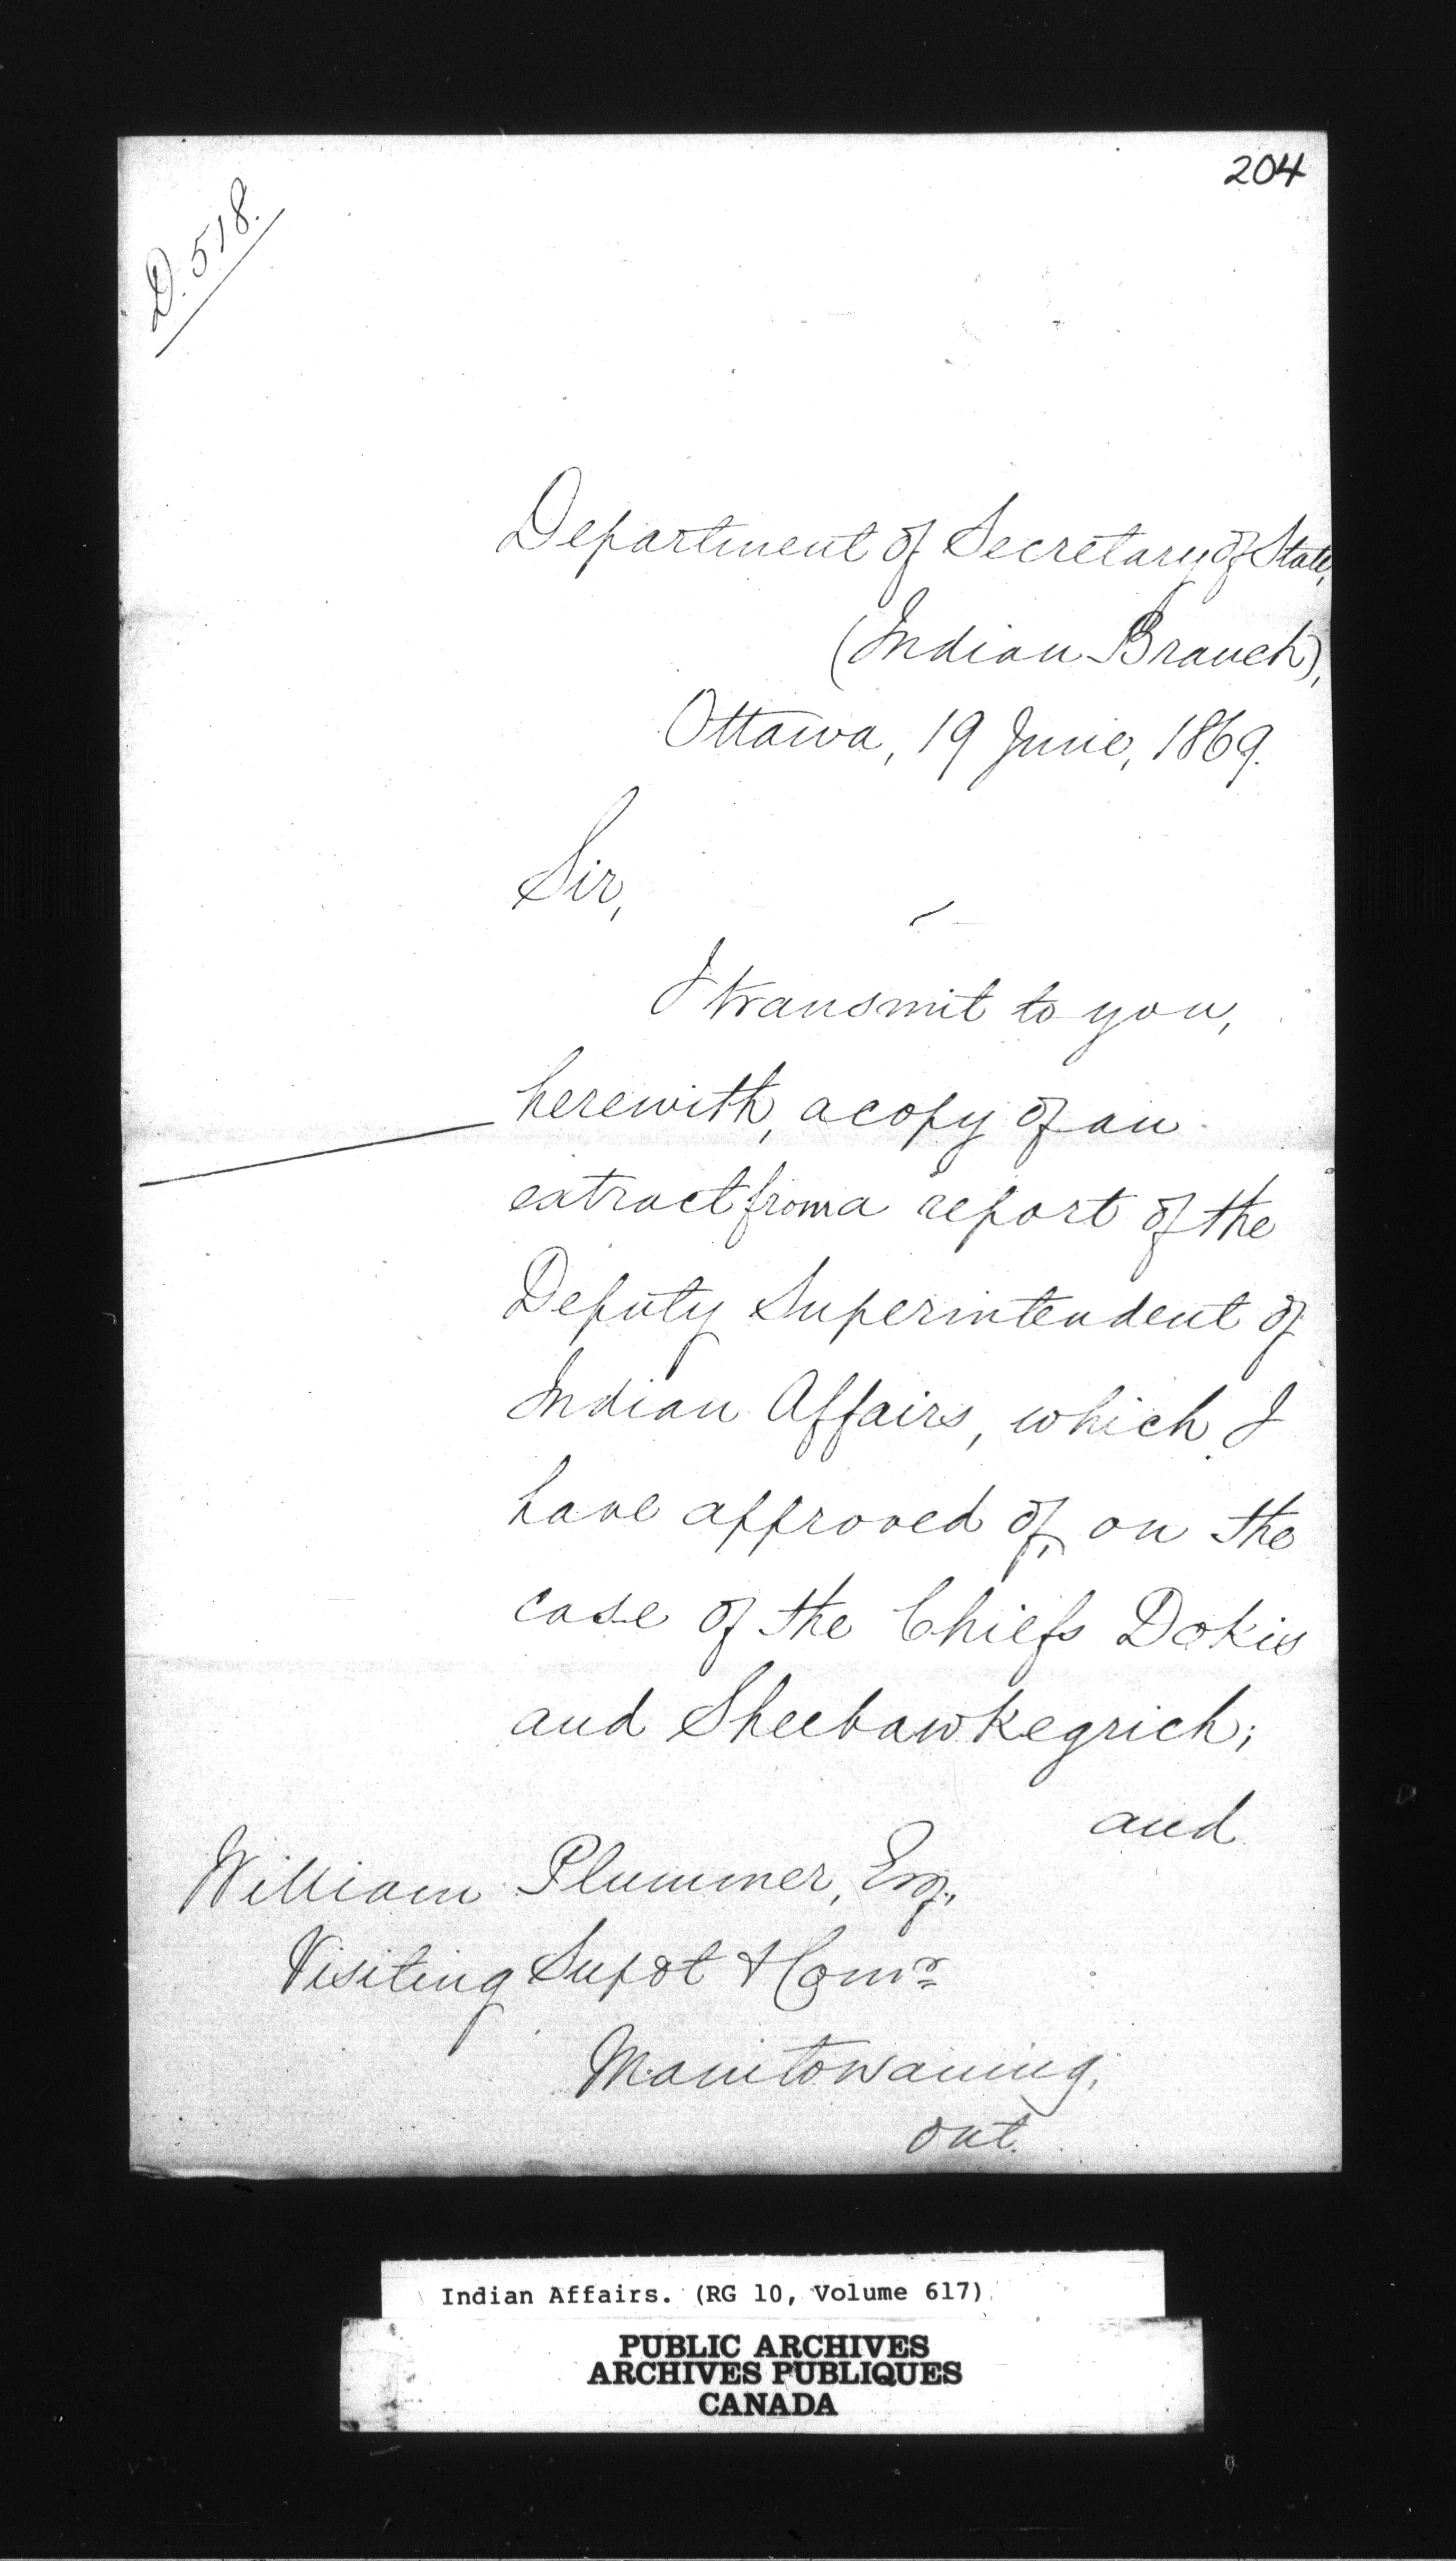 204
D. 518.
Department of Secretary of State,
(Indian Branch),
Ottawa, 19 June, 1869.
Sir,
I transmit to you,
herewith, a copy of an
extract from a report of the
Deputy Superintendent of
Indian Affairs, which I
have approved of, on the
case of the Chiefs Dokis
and Sheebawkegrich;
and
William Plummer, Esq.,
Visiting Supdt & Comr
Manitowaning,
Ont.
Indian Affairs. (RG 10, Volume 617)
PUBLIC ARCHIVES
ARCHIVES PUBLIQUES
CANADA